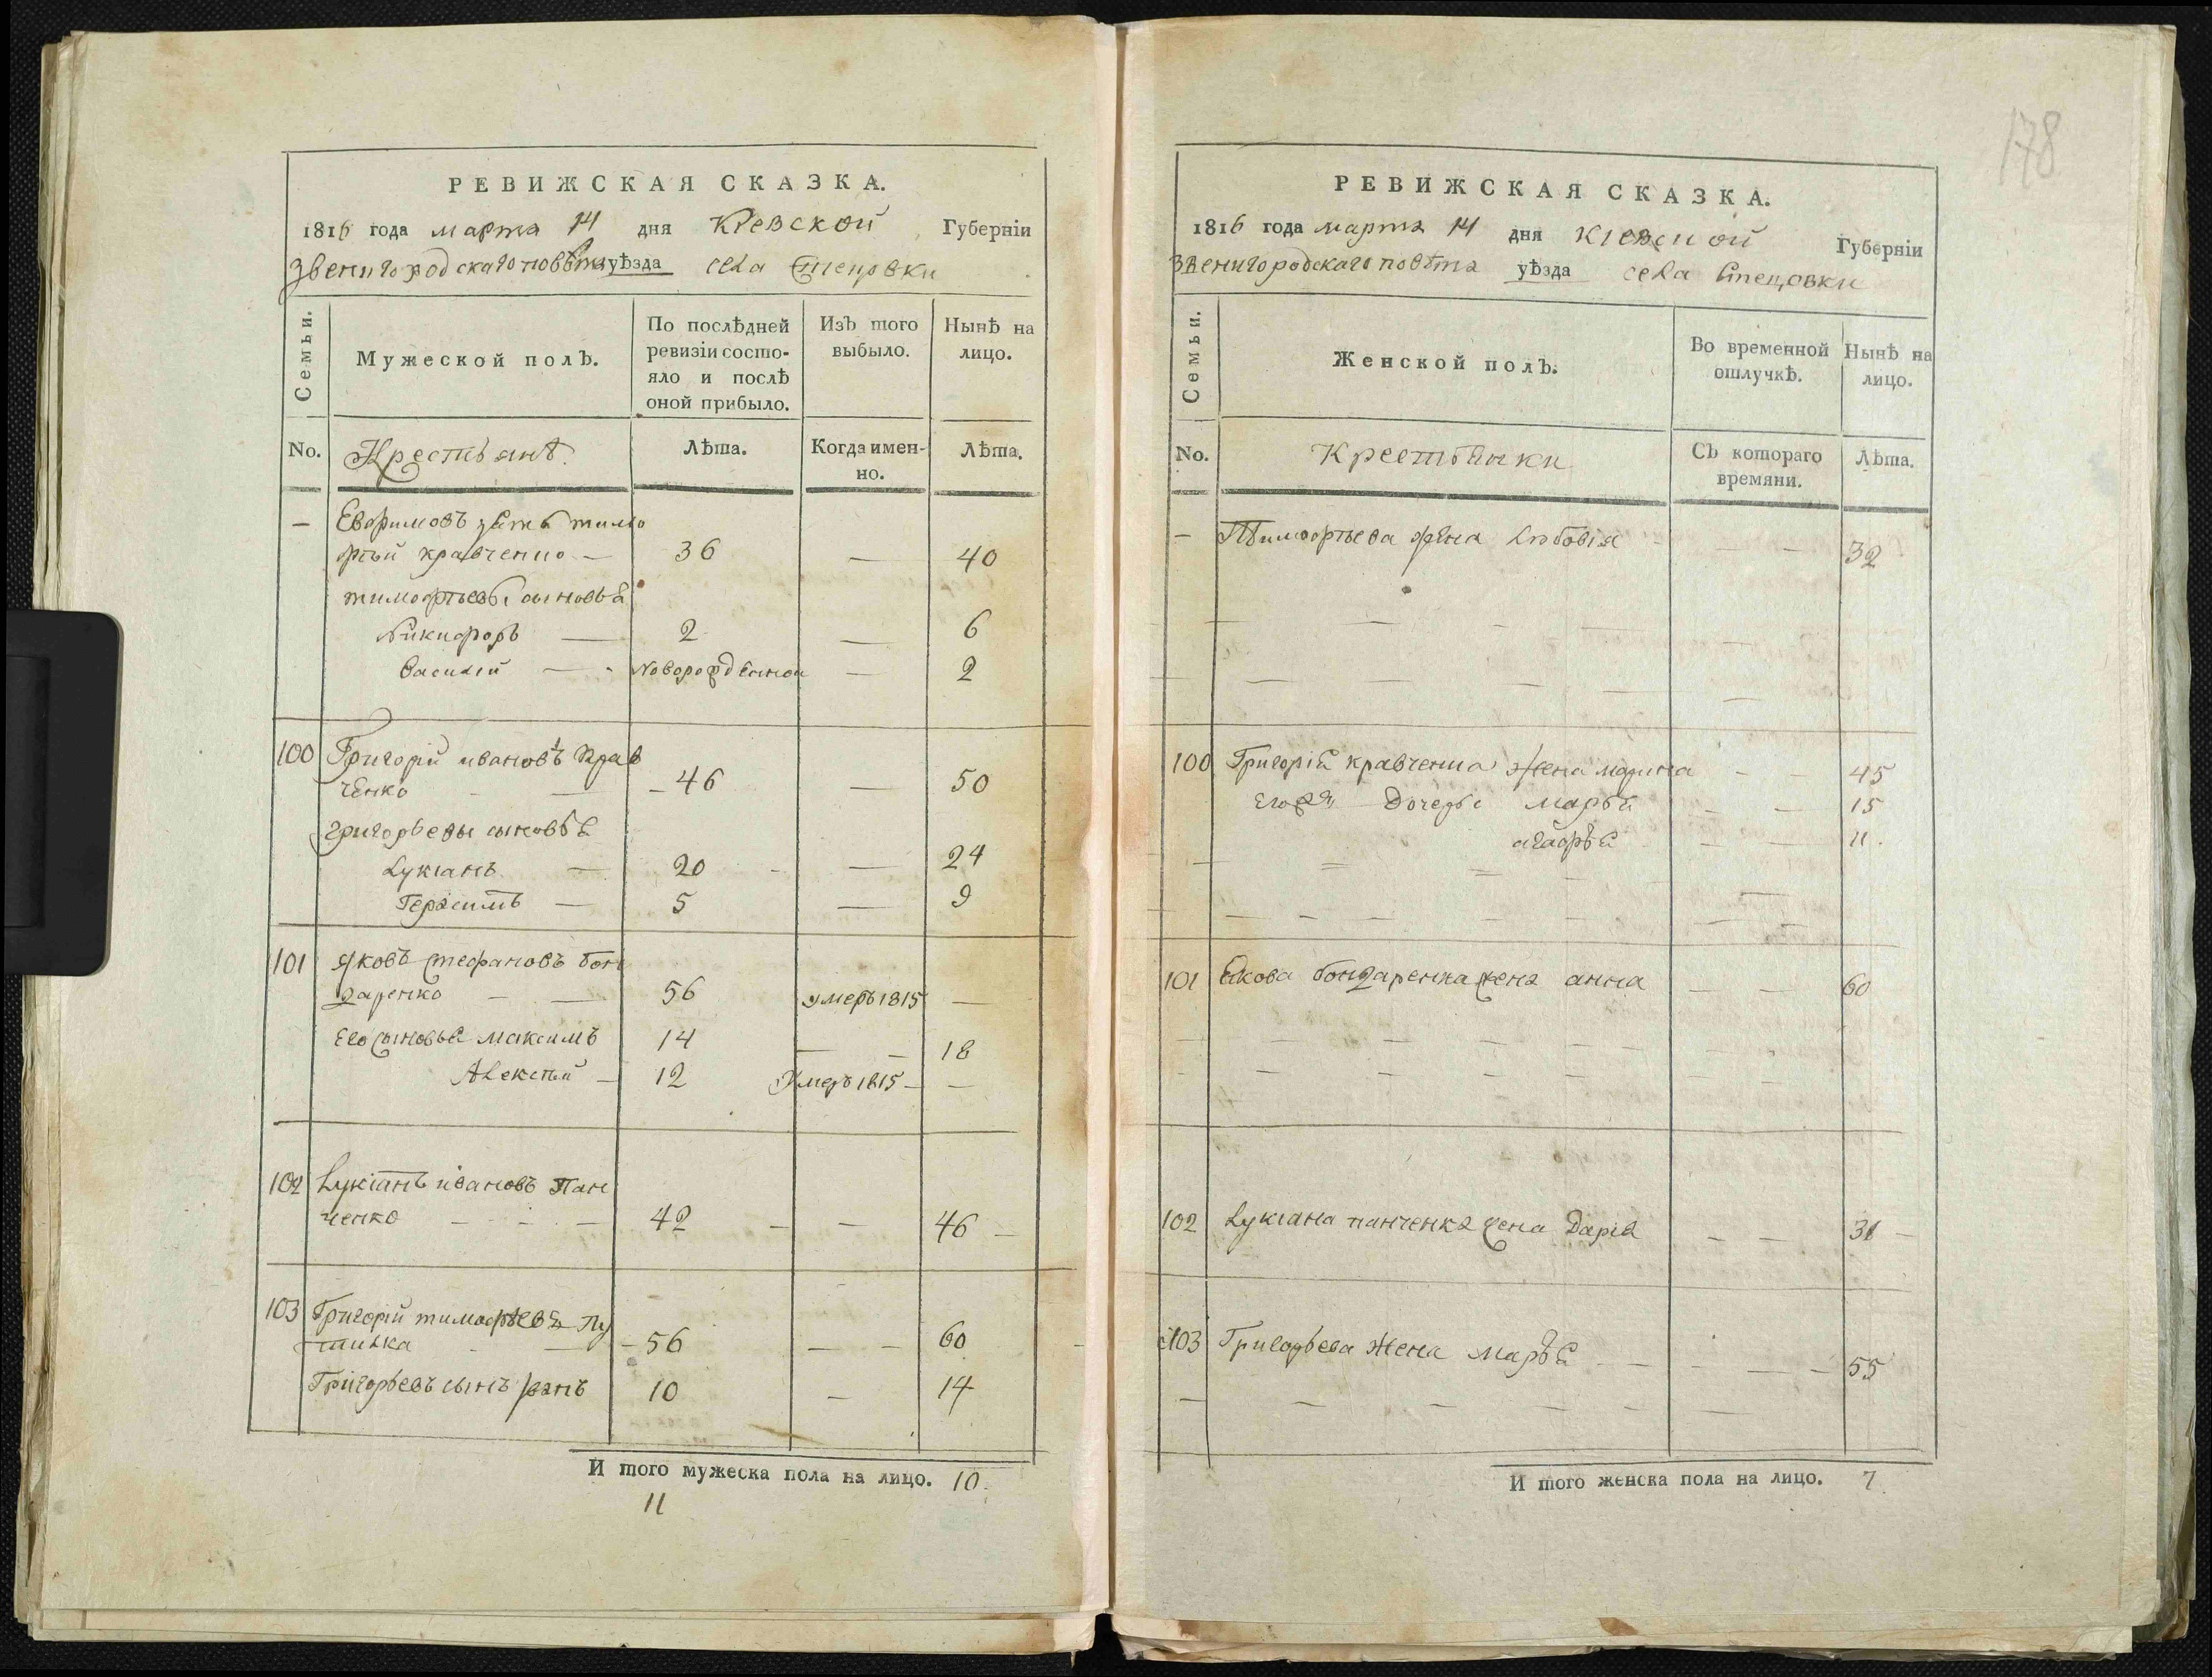 РЕВИЖСКАЯ СКАЗКА.
1816 года марта 14 дня Кіевской Губерніи
Звенигородскаго повѣта уѣзда села Стецовки
Семьи.
Мужеской полъ.
По послѣдней ревизіи состояло и послѣ оной прибыло.
Изъ того выбыло.
Нынѣ на лицо.
No. Крестьянѣ. Лѣта. Когда именно. Лѣта.
— Ефримовъ зять тимо
фѣй кравченко — 36 — 40
тимофѣевы сыновья
Никифоръ — 2 — 6
Василій — Новорожденной — 2
100 Григорій ивановъ Крав
ченко — 46 — 50
григорьевы сыновья
Лукіанъ — 20 — 24
Герасимъ — 5 — 9
101 Яковъ стефановъ бон
даренко — 56 умеръ 1815 —
Его сыновья максимъ 14 — 18
Алексѣй — 12 Умеръ 1815 — —
102 Лукіанъ ивановъ Пан
ченко — 42 — — 46 —
103 Григорій тимофѣевъ
— 56 — — 60
Григорьевъ сынъ 10 — 14
И того мужеска пола на лицо. 10.
11
178
РЕВИЖСКАЯ СКАЗКА.
1816 года марта 14 дня Кіевской Губерніи
Звенигородскаго повѣта уѣзда села Стецовки
Семьи.
Женской полъ.
Во временной отлучкѣ.
Нынѣ на лицо.
No. Крестьянки Съ котораго времяни. Лѣта.
— Тимофѣева жена Любовія — — 32
100 Григорія кравченка жена марина — — 45
Его Дочеры марья — — 15
агафья — — 11.
101 Якова бондаренка жена анна — — 60
102 Лукіана панченка жена Дарія — — 31 —
103 Григорьева жена марья — — 55
И того женска пола на лицо. 7.